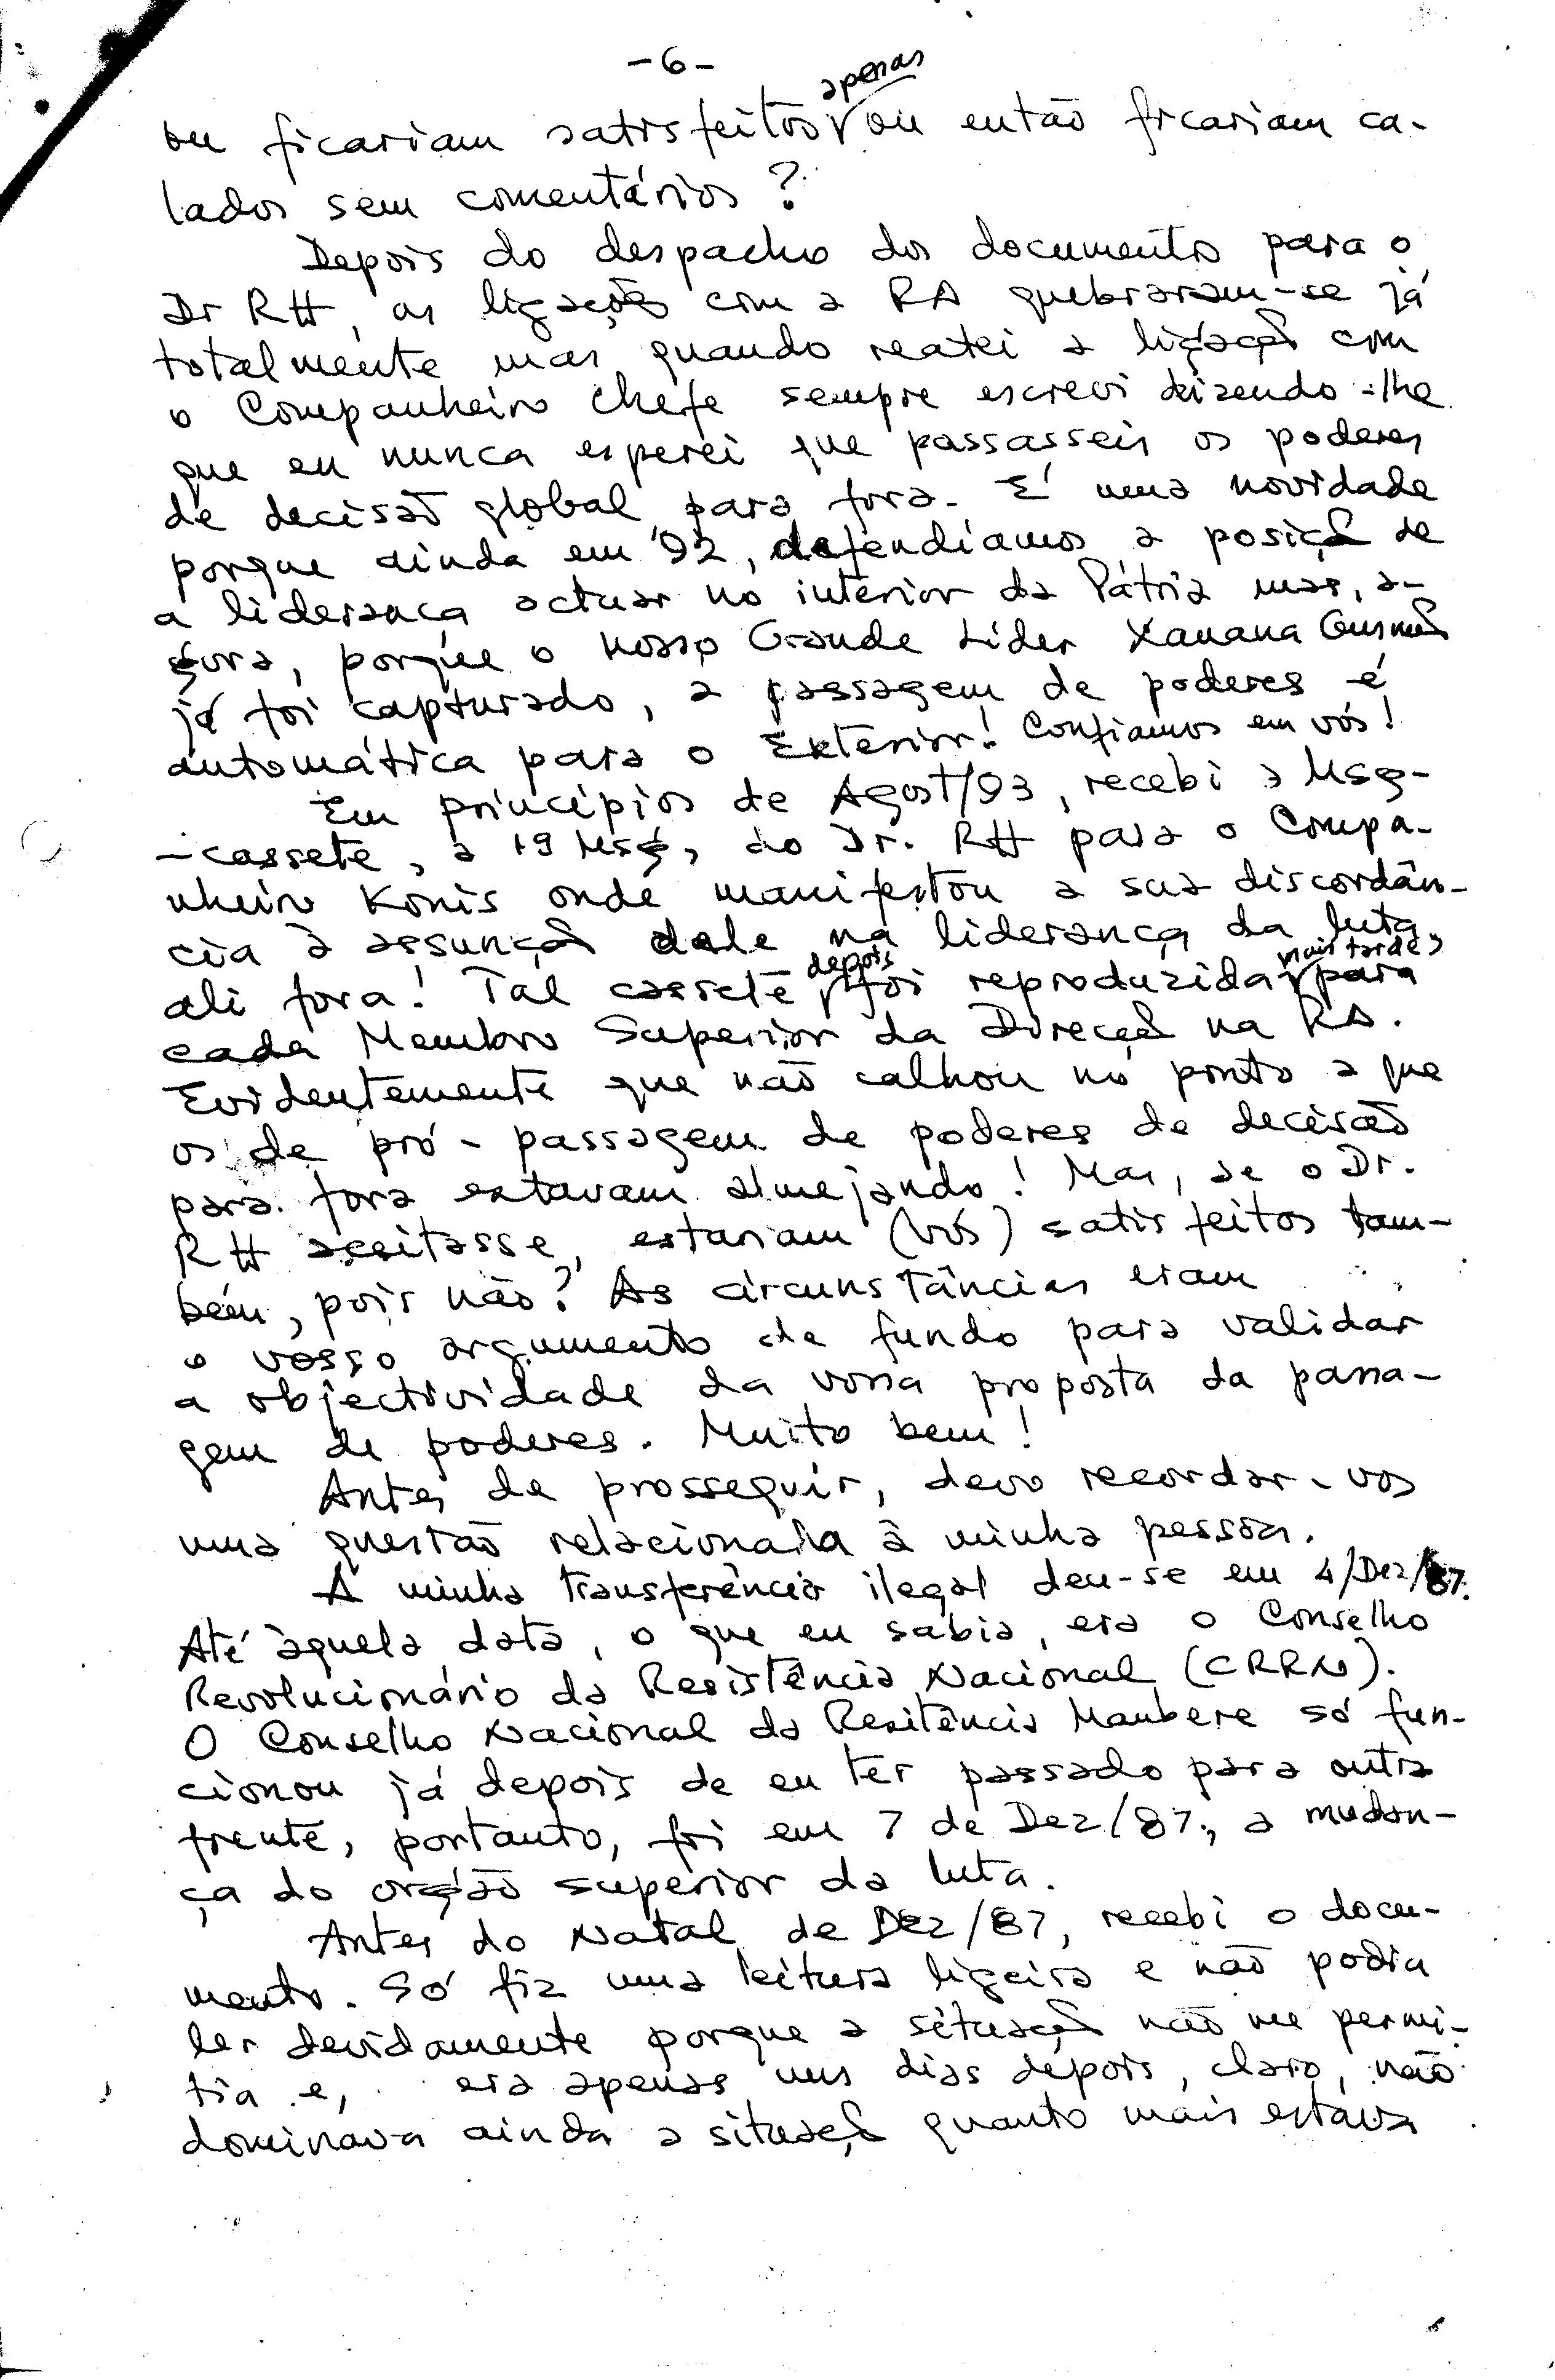 -6-
ou ficariam satisfeitos apenas ou então ficariam ca-
lados sem comentários?
Depois do despacho dos documentos para o
Dr RH, as ligações com a RA quebraram-se já
totalmente mas quando reatei a ligação com
o Companheiro Chefe sempre escrevi dizendo-lhe
que eu nunca esperei que passasseis os poderes
de decisão global para fora. É uma novidade
porque ainda em 92, defendíamos a posição de
a liderança actuar no interior da Pátria mas, a-
gora, porque o nosso Grande Líder Xanana Gusmão
já foi capturado, a passagem de poderes é
automática para o Exterior! Confiamos em vós!
Em princípios de Agost/93, recebi a Msg-
-cassete, a 1ª Msg, do Dr. RH para o Compa-
nheiro Konis onde manifestou a sua discordân-
cia à assunção dele na liderança da luta,
ali fora! Tal cassete depois foi reproduzida mais tarde, para
cada Membro Superior da Direcção na RA.
Evidentemente que não calhou no ponto a que
os de pró-passagem de poderes de decisão
para fora estavam almejando! Mas, se o Dr.
RH aceitasse, estariam (vós) satisfeitos tam-
bém, pois não? As circunstâncias eram
o vosso argumento de fundo para validar
a objectividade da vossa proposta da passa-
gem de poderes. Muito bem!
Antes de prosseguir, devo recordar-vos
uma questão relacionada à minha pessoa.
A minha transferência ilegal deu-se em 4/Dez/87.
Até àquela data, o que eu sabia, era o Conselho
Revolucionário da Resistência Nacional (CRRN).
O Conselho Nacional da Resitência Maubere só fun-
cionou já depois de eu ter passado para outra
frente, portanto, foi em 7 de Dez/87, a mudan-
ça do orgão superior da luta.
Antes do Natal de Dez/87, recebi o docu-
mento. Só fiz uma leitura ligeira e não podia
ler devidamente porque a situação não me permi-
tia e, era apenas uns dias depois, claro, não
dominava ainda a situação quanto mais estava